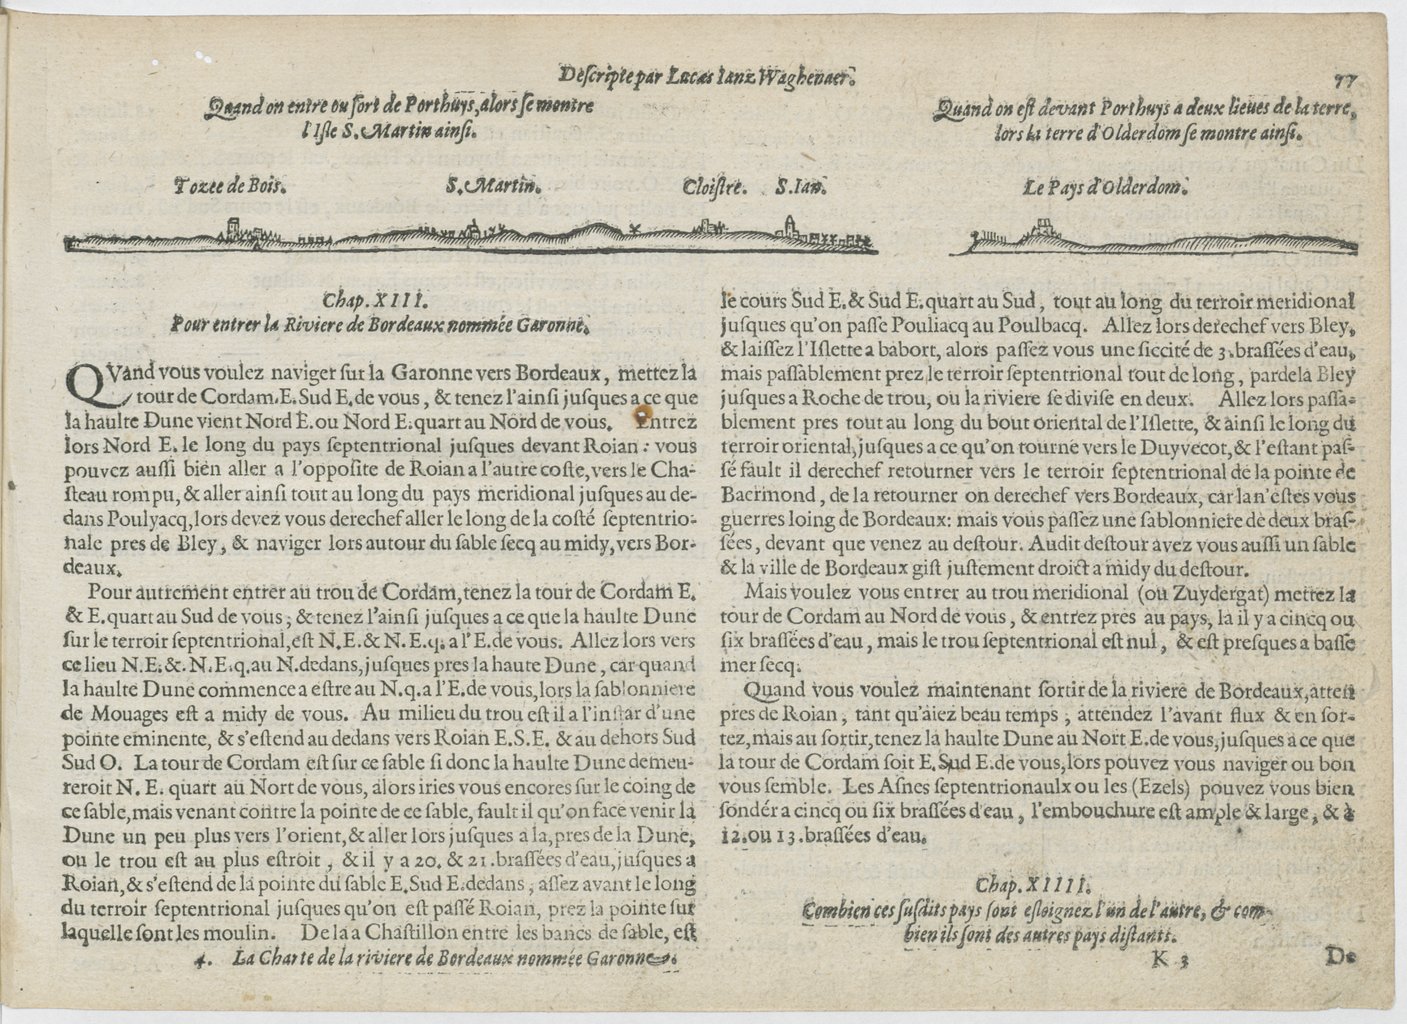 Descripte par Lucas Ianz Waghenaer.
77
Quand on entre ou sort de Porthuys, alors se montre
l'Isle S. Martin ainsi.
Quand on est devant Porthuys a deux lieues de la terre,
lors la terre d'Olderdom se montre ainsi.
Tozee de Bois.
S. Martin.
Cloistre.
S. Ian.
Le Pays d'Olderdom.
Chap. XIII.
Pour entrer la Riviere de Bordeaux nommée Garonne.
QVand vous voulez naviger sur la Garonne vers Bordeaux, mettez la
tour de Cordam. E. Sud E. de vous, & tenez l'ainsi jusques a ce que
la haulte Dune vient Nord E. ou Nord E. quart au Nord de vous. Entrez
lors Nord E. le long du pays septentrional jusques devant Roian: vous
pouvez aussi bien aller a l'opposite de Roian a l'autre coste, vers le Cha-
steau rompu, & aller ainsi tout au long du pays meridional jusques au de-
dans Poulyacq, lors devez vous derechef aller le long de la costé septentrio-
nale pres de Bley, & naviger lors autour du sable secq au midy, vers Bor-
deaux.
Pour autrement entrer au trou de Cordam, tenez la tour de Cordam E.
& E. quart au Sud de vous, & tenez l'ainsi jusques a ce que la haulte Dune
sur le terroir septentrional, est N.E. & N.E.q. a l'E. de vous. Allez lors vers
ce lieu N.E. &. N.E.q. au N. dedans, jusques pres la haute Dune, car quand
la haulte Dune commence a estre au N.q. a l'E. de vous, lors la sablonniere
de Mouages est a midy de vous. Au milieu du trou est il a l'instar d'une
pointe eminente, & s'estend au dedans vers Roian E.S.E. & au dehors Sud
Sud O. La tour de Cordam est sur ce sable si donc la haulte Dune demeu-
reroit N. E. quart au Nort de vous, alors iries vous encores sur le coing de
ce sable, mais venant contre la pointe de ce sable, fault il qu'on face venir la
Dune un peu plus vers l'orient, & aller lors jusques a la, pres de la Dune,
ou le trou est au plus estroit, & il y a 20. & 21. brassées d'eau, jusques a
Roian, & s'estend de la pointe du sable E. Sud E. dedans, assez avant le long
du terroir septentrional jusques qu'on est passé Roian, prez la pointe sur
laquelle sont les moulin. De la a Chastillon entre les bancs de sable, est
4. La Charte de la riviere de Bordeaux nommée Garonne.
le cours Sud E. & Sud E. quart au Sud, tout au long du terroir meridional
jusques qu'on passe Pouliacq au Poulbacq. Allez lors derechef vers Bley,
& laissez l'Islette a babort, alors passez vous une siccité de 3. brassées d'eau,
mais passablement prez le terroir septentrional tout de long, pardela Bley
jusques a Roche de trou, ou la riviere se divise en deux. Allez lors passa-
blement pres tout au long du bout oriental de l'Islette, & ainsi le long du
terroir oriental, jusques a ce qu'on tourne vers le Duyvecot, & l'estant pas-
sé fault il derechef retourner vers le terroir septentrional de la pointe de
Baermond, de la retourner on derechef vers Bordeaux, car la n'estes vous
guerres loing de Bordeaux: mais vous passez une sablonniere de deux bras-
sées, devant que venez au destour. Audit destour avez vous aussi un sable
& la ville de Bordeaux gist justement droict a midy du destour.
Mais voulez vous entrer au trou meridional (ou Zuydergat) mettez la
tour de Cordam au Nord de vous, & entrez pres au pays, la il y a cincq ou
six brassées d'eau, mais le trou septentrional est nul, & est presques a basse
mer secq.
Quand vous voulez maintenant sortir de la riviere de Bordeaux, atten
pres de Roian, tant qu'aiez beau temps, attendez l'avant flux & en sor-
tez, mais au sortir, tenez la haulte Dune au Nort E. de vous, jusques a ce que
la tour de Cordam soit E. Sud E. de vous, lors pouvez vous naviger ou bon
vous semble. Les Asnes septentrionaulx ou les (Ezels) pouvez vous bien
sondér a cincq ou six brassées d'eau, l'embouchure est ample & large, & à
12. ou 13. brassées d'eau.
Chap. XIIII.
Combien ces susdits pays sont esloignez l'un de l'autre, & com-
bien ils sont des autres pays distants.
K 3
De